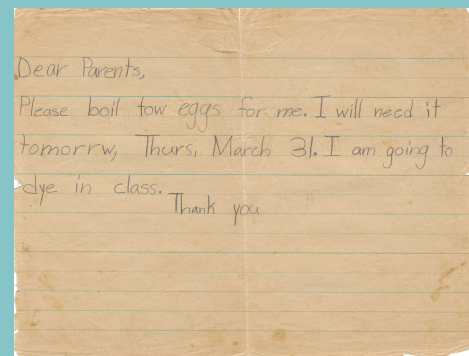 Dear Parents,
Please boil tow eggs for me. I will need it
tomorrw, Thurs, March 31. I am going to
dye in class.
Thank you